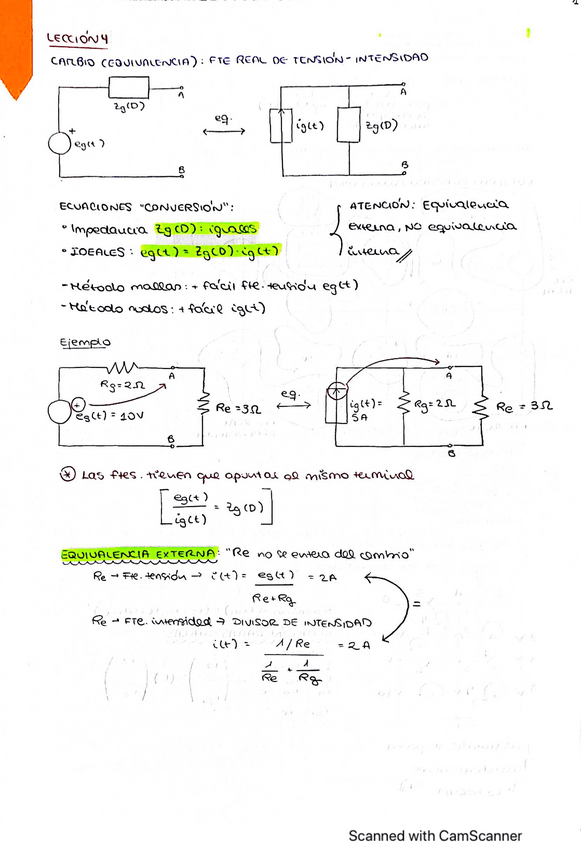 LECCIÓN 4
CAMBIO (EQUIVALENCIA): FTE REAL DE TENSIÓN - INTENSIDAD
A
Zg(D)
+
eg(t)
B
eq.
A
ig(t)
Zg(D)
B
ECUACIONES "CONVERSIÓN":
• Impedancia Zg(D): iguales
• IDEALES: eg(t) = Zg(D)·ig(t)
ATENCIÓN: Equivalencia
externa, NO equivalencia
interna
- Método mallas: + fácil fte. tensión eg(t)
- Método nudos: + fácil ig(t)
Ejemplo
Rg=2Ω
A
+
eg(t) = 10V
Re = 3Ω
B
eq.
A
ig(t)=
5A
Rg=2Ω
Re = 3Ω
B
* Las ftes. tienen que apuntar al mismo terminal
[eg(t)/ig(t) = Zg(D)]
EQUIVALENCIA EXTERNA: "Re no se entera del cambio"
Re → Fte. tensión → i(t) = eg(t)/(Re+Rg) = 2A
=
Re → FTE. intensidad → DIVISOR DE INTENSIDAD
i(t) = (1/Re)/(1/Re + 1/Rg) = 2A
Scanned with CamScanner